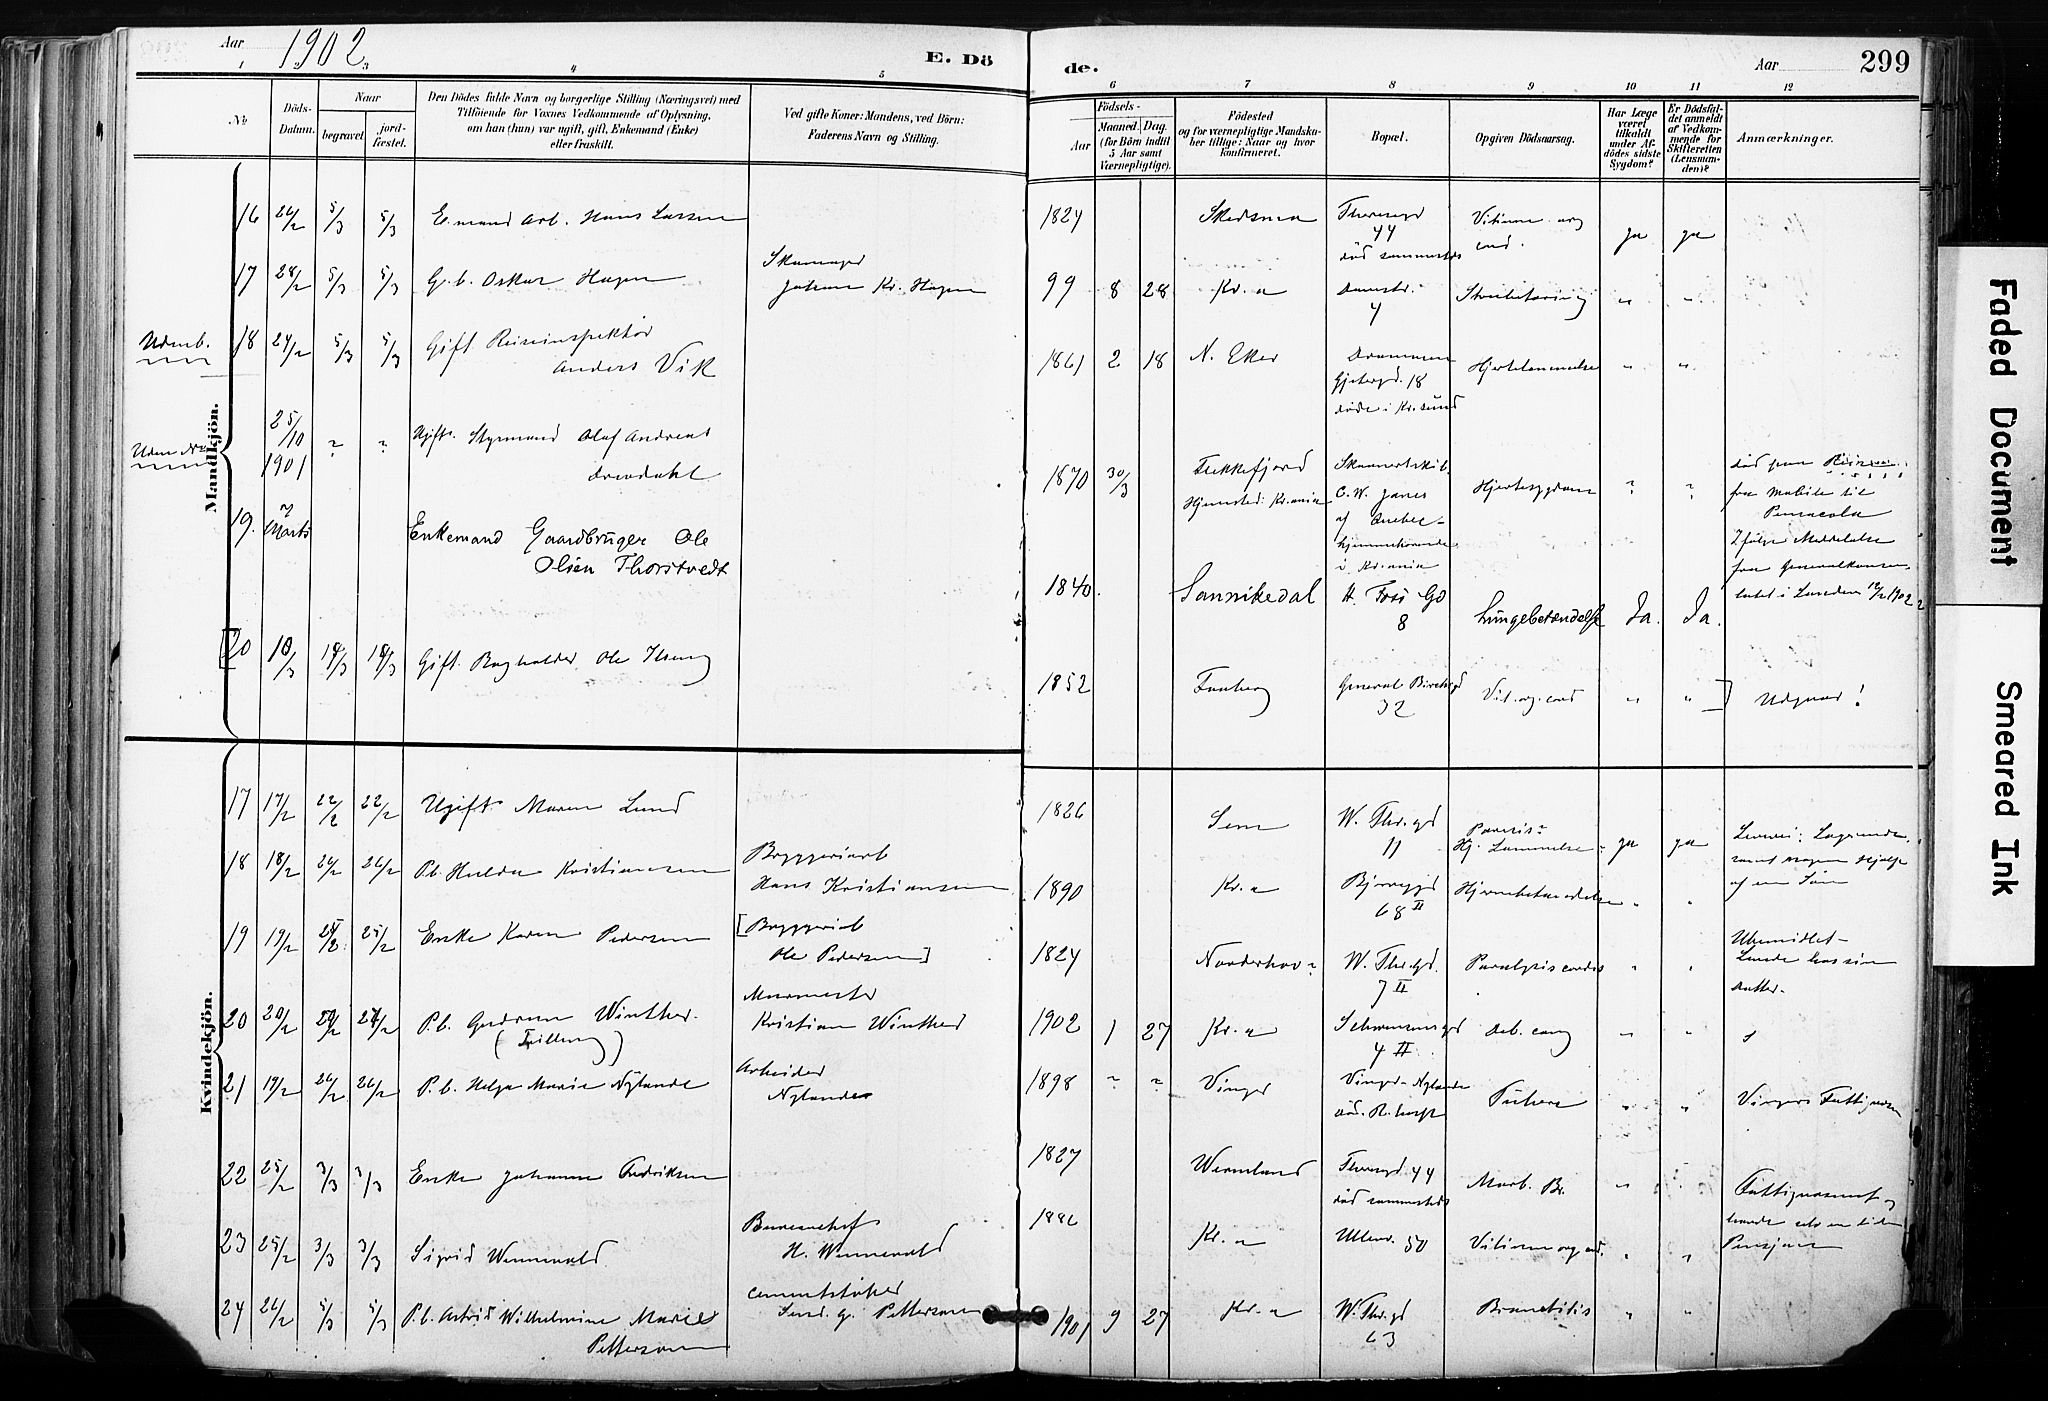 Aar 1902
E. Döde.
Aar
299
1 3 4 5 6 7 8 9 10 11 12
№
Döds-Datum.
Naar
begravet.
jord-fæstet.
Den Dödes fulde Navn og borgerlige Stilling (Næringsvei) med
Tilföiende for Voxnes Vedkommende af Oplysning,
om han (hun) var ugift, gift, Enkemand (Enke)
eller fraskilt.
Ved gifte Koner: Mandens, ved Börn:
Faderens Navn og Stilling.
Födsels-
Aar
Maaned. Dag.
(for Börn indtil
5 Aar samt
Værnepligtige).
Födested
og for værnepligtige Mandska-
ber tillige: Naar og hvor
konfirmeret.
Bopæl.
Opgiven Dödsaarsag.
Har Læge
været
tilkaldt
under Af-
dödes sidste
Sygdom?
Er Dödsfal-
det anmeldt
af Vedkom-
mende for
Skifteretten
(Lensman-
den)?
Anmærkninger.
Mandkjön.
16 26/2 5/3 5/3 E.mand Arb. Hans Larsen 1824 Skedsmo Theresegd 44 død sammesteds Vitium org. cord. ja ja
17 28/2 5/3 5/3 G.b. Oskar Hagen Skomager Johan Kr. Hagen 99 8 28 Kr.a Damstr. 4 " "
Udenb. 18 24/2 5/3 5/3 Gift Reiseinspektör Anders Vik 1861 2 18 N. Eker Drammen 18 døde i Kr.sund Hjertelammelse " "
Uden No 25/10 1901 ? ? Ugift. Styrmand Olaf Andreas 1870 30/3 Flekkefjord Hjemsted: Kr.ania C.W. Janes af Quebec - i Kr.ania Hjertesygdom ? ? død paa Reisen fra Mobile til Pensacola Ifølge Meddelelse fra Generalkonsulatet i London 12/2 1902
19. 7 Marts Enkemand Gaardbruger Ole Olsen Thorstvedt 1840. Sannikedal H. Foss Gd 8 Lungebetændelse Ja. Ja.
[20 10/3 18/3 18/3 Gift. Bogholder Ole 1852 Faaberg General Birchsgd 32 Vit. org. cord " " ] Udgaar!
Kvindekjön.
17 17/2 22/2 22/2 Ugift Maren Lund 1826 Sem W. Thr.gd 11 Paresis? Hj. Lammelse ja ja
18 18/2 26/2 26/2 P.b. Hulda Kristiansen Bryggeriarb Hans Kristiansen 1890 Kr.a 68 II Hjernebetændelse " " af en Søn
19 19/2 25/2 25/2 Enke Karen Pedersen [Bryggeriarb Ole Pedersen] 1824 Norderhov ? W. Thr.gd. 7 II Paralysis cordis " " Ubemidlet - Levede hos sin Datter.
20 20/2 P.b. Gudrun Winther. (Tvilling) Murmester Kristian Winther 1902 1 27 Kr.a Schwensensgd 4 II Deb. cong " "
21 19/2 26/2 26/2 P.b. Helga Marie Nylande Arbeider Nylande 1898 ? ? Vinger Vinger - Nylande " " Vingers Fattigvæsen
22 25/2 3/3 3/3 Enke Johanne Fredriksen 1827 Wermland Theresegd 44 død sammesteds Morb. Br. " " Fattigvæsenet og havde selv en liden Pension
23 25/2 3/3 3/3 Sigrid Wennevold Bureauchef H. Wennevold 1886 Kr.a Ullev. 50 Vitium org. cord. " "
24 26/2 5/3 5/3 P.b. Astrid Wilhelmine Marie Petterson Cementstøber G. Petterson 1901 9 27 Kr.a W. Thr.gd 63 Bronchitis " "
Faded Document
Smeared Ink